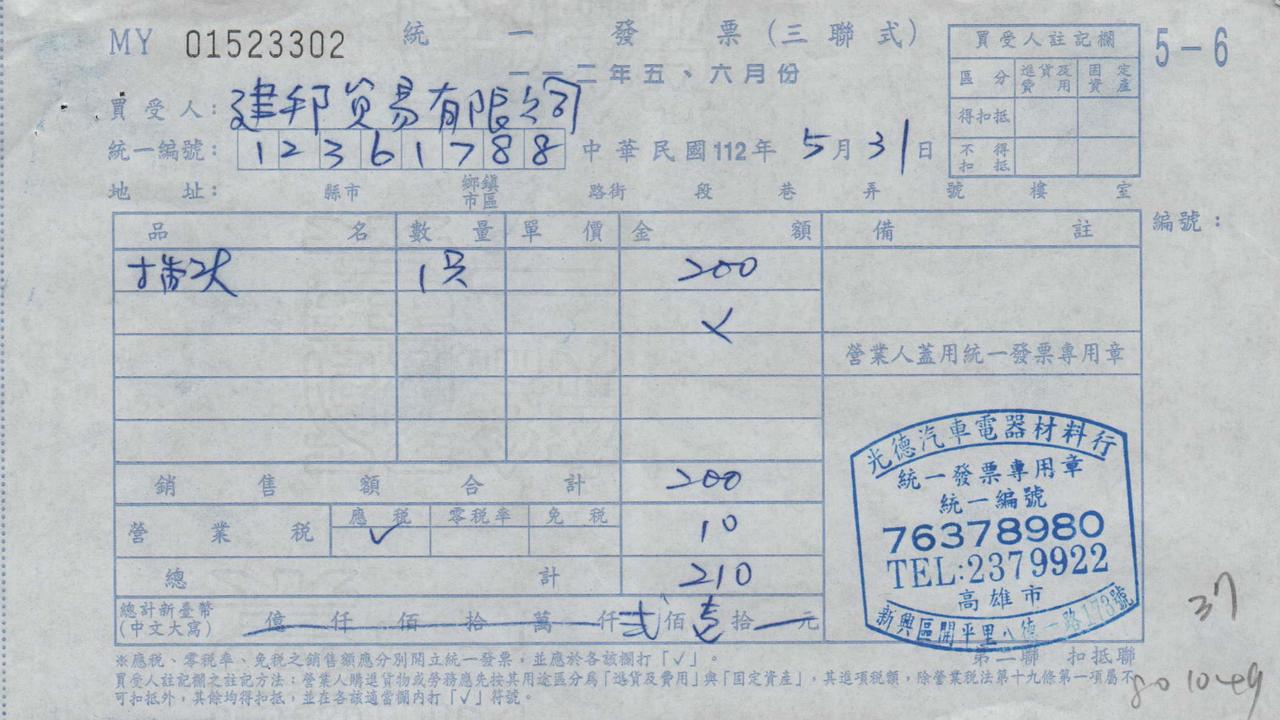 MY 01523302 統一發票(三聯式)
一一二年五、六月份
5-6
買受人註記欄
區分 進貨及費用 固定資產
得扣抵
不得扣抵
買受人: 建邦貿易有限公司
統一編號: 12361788 中華民國112年5月31日
地址: 縣市 鄉鎮市區 路街 段 巷 弄 號 樓 室
編號:
品名 數量 單價 金額 備註
1只 200
銷售額合計 200
營業稅 應稅 ✓ 零稅率 免稅 10
總計 210
總計新臺幣(中文大寫) 億仟佰拾萬仟弍佰壱拾元
營業人蓋用統一發票專用章
光德汽車電器材料行
統一發票專用章
統一編號
76378980
TEL:2379922
高雄市
新興區開平里八德一路173號
37
第二聯 扣抵聯
※應稅、零稅率、免稅之銷售額應分別開立統一發票,並應於各該欄打「✓」。
買受人註記欄之註記方法:營業人購進貨物或勞務應先按其用途區分為「進貨及費用」與「固定資產」,其進項稅額,除營業稅法第十九條第一項屬不
可扣抵外,其餘均得扣抵,並在各該適當欄內打「✓」符號。
801049